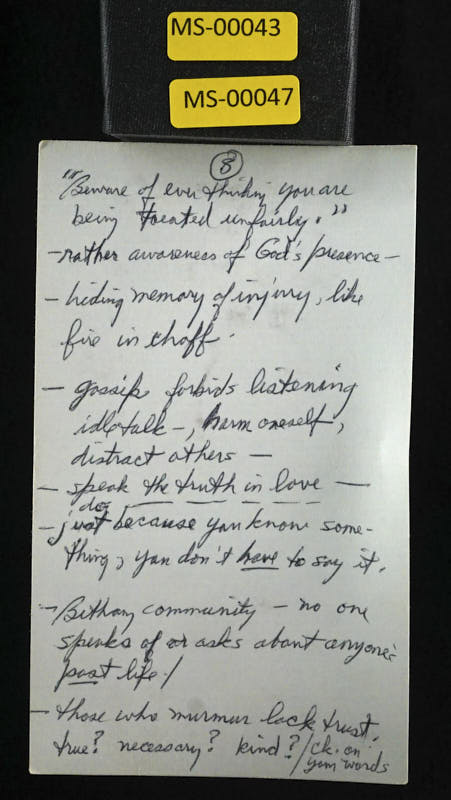 MS-00043
MS-00047
8
"Beware of ever thinking you are
being treated unfairly."
- rather awareness of God's presence -
- hiding memory of injury, like
fire in chaff.
- gossip forbids listening
idle talk -, harm oneself,
distract others -
- speak the truth in love -
- just because you know some-
thing, you don't have to say it.
- Bethany community - no one
speaks of or asks about anyone's
past life!
- those who murmur lack trust.
true? necessary? kind? / ck. on
your words